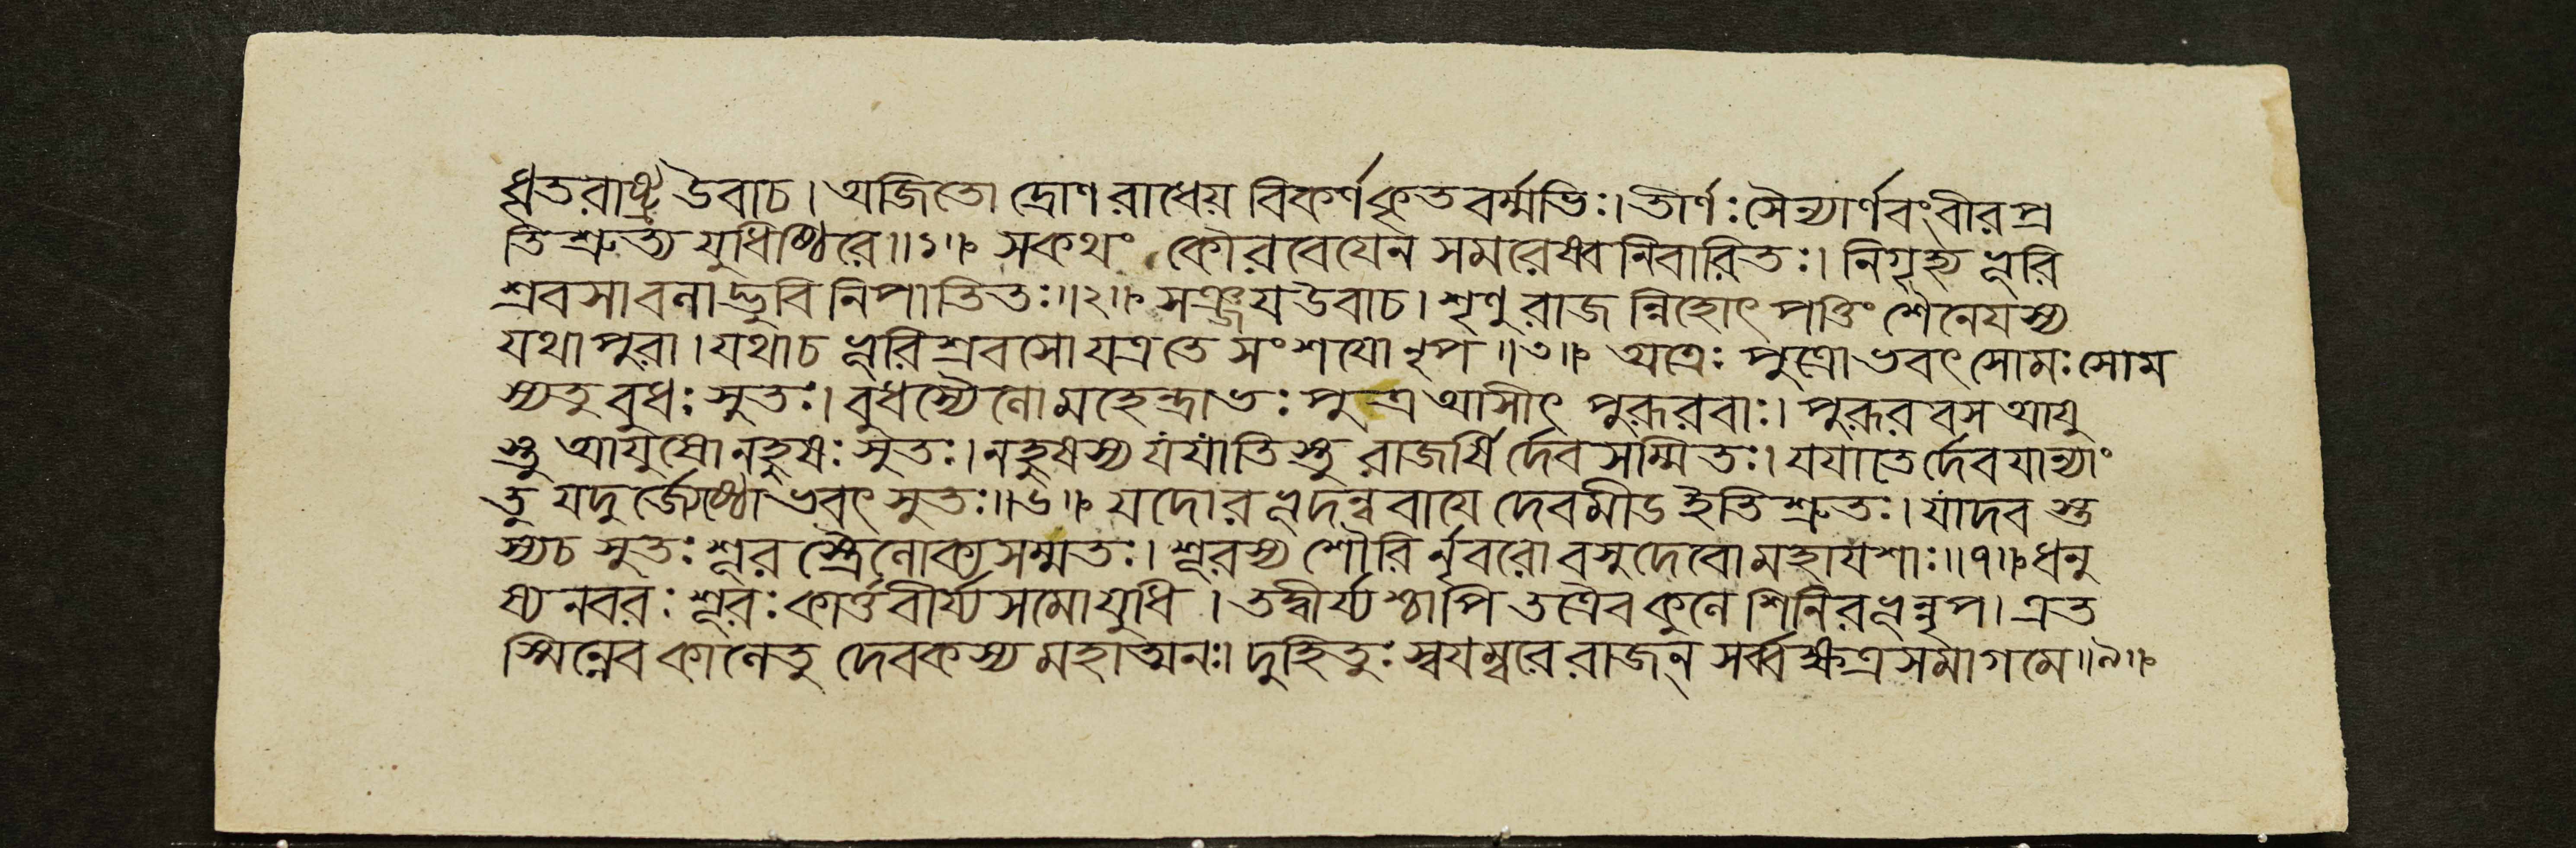 ধৃতরাষ্ট্র উবাচ। অজিতো দ্রোণরাধেয় বিকর্ণকৃতবর্ম্মভিঃ। তীর্ণঃ সৈন্যার্ণবং বীর প্র
তিশ্রুত্য যুধিষ্ঠিরে॥১॥ স কথং কৌরবেয়েন সমরেষ্বনিবারিতঃ। নিগৃহ্য ভূরি
শ্রবসা বলাদ্ভুবি নিপাতিতঃ॥২॥ সঞ্জয় উবাচ। শৃণু রাজন্নিহোৎপত্তিং শৈনেয়স্য
যথা পুরা। যথা চ ভূরিশ্রবসো যত্র তে সংশয়ো নৃপ॥৩॥ অত্রেঃ পুত্রোভবৎ সোমঃ সোম
স্য তু বুধঃ সুতঃ। বুধস্যৈলো মহেন্দ্রাভঃ পুত্র আসীৎ পুরূরবাঃ। পুরূরবস আয়ু
স্তু আয়ুষো নহুষঃ সুতঃ। নহুষস্য যযাতিস্তু রাজর্ষির্দেবসম্মিতঃ। যযাতের্দেবযান্যাং
তু যদুর্জ্যেষ্ঠোভবৎ সুতঃ॥৬॥ যদোরভূদন্ববায়ে দেবমীড ইতি শ্রুতঃ। যাদবস্ত
স্য চ সুতঃ শূরস্ত্রৈলোক্যসম্মতঃ। শূরস্য শৌরির্নৃবরো বসুদেবো মহাযশাঃ॥৭॥ ধনু
ষ্যনবরঃ শূরঃ কার্ত্তবীর্য্যসমো যুধি। তদ্বীর্য্যশ্চাপি তত্রৈব কুলে শিনিরভূন্নৃপ। এত
স্মিন্নেব কালে তু দেবকস্য মহাত্মনঃ। দুহিতুঃ স্বয়ম্বরে রাজন্ সর্ব্বক্ষত্রসমাগমে॥৯॥